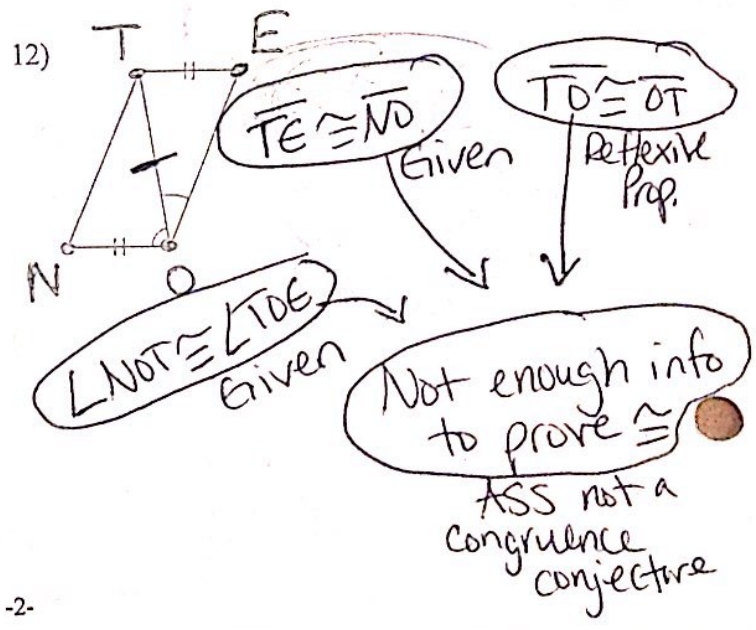 12)
T E
N O
T̅E̅ ≅ N̅O̅
Given
T̅O̅ ≅ O̅T̅
Reflexive
Prop.
∠NOT ≅ ∠TOE
Given
Not enough info
to prove ≅
ASS not a
congruence
conjective
-2-